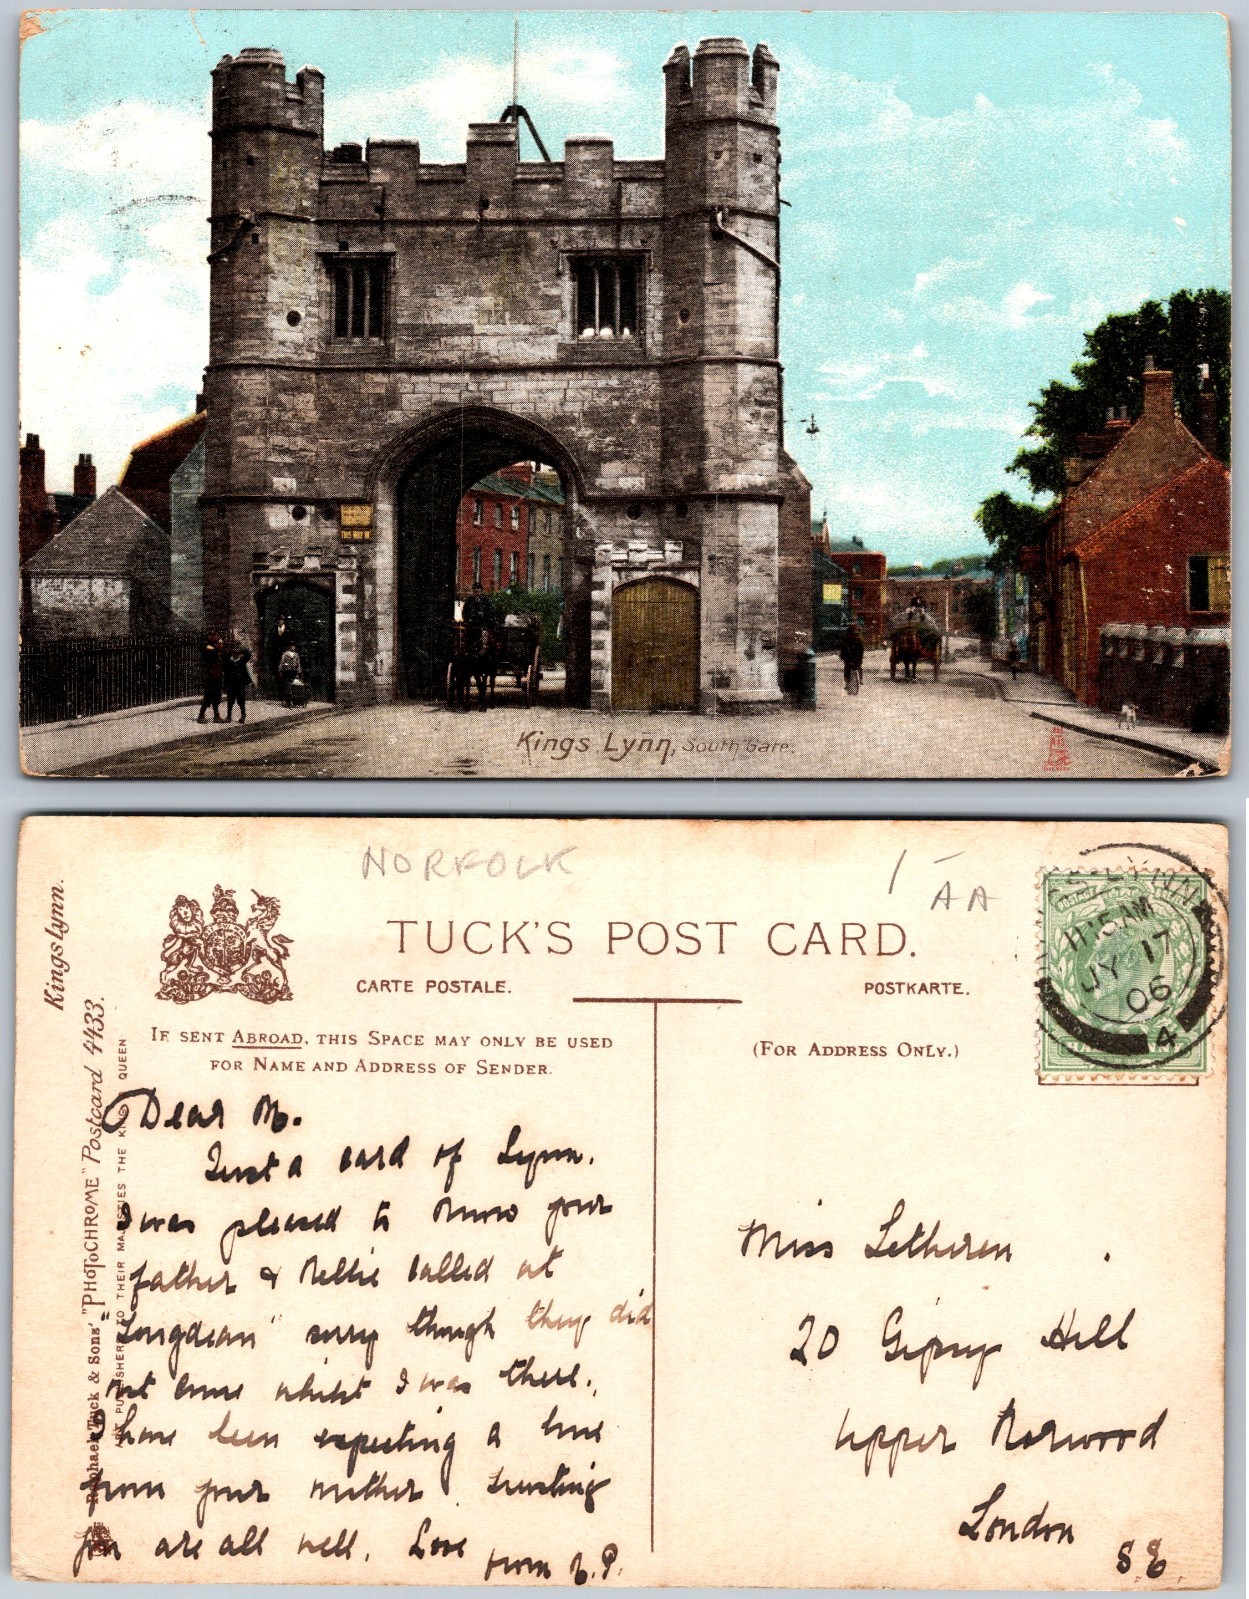 THIS WAY IN
Kings Lynn, South Gate.
NORFOLK
/-
AA
TUCK'S POST CARD.
CARTE POSTALE.
POSTKARTE.
IF SENT ABROAD, THIS SPACE MAY ONLY BE USED
FOR NAME AND ADDRESS OF SENDER.
(FOR ADDRESS ONLY.)
KING'S LYNN
11.15AM
JY 17
06
4
Kings Lynn.
Raphael Tuck & Sons' "PHOTOCHROME" Postcard 4433.
ART PUBLISHERS TO THEIR MAJESTIES THE KING & QUEEN
Dear M.
Just a card of Lynn.
I was pleased to know your
father & Nellie called at
"Longdean" sorry though they did
not come whilst I was there.
I have been expecting a line
from your mother. Trusting
you are all well. Love
from
Miss Letheren
20 Gipsy Hill
Upper Norwood
London
S.E.